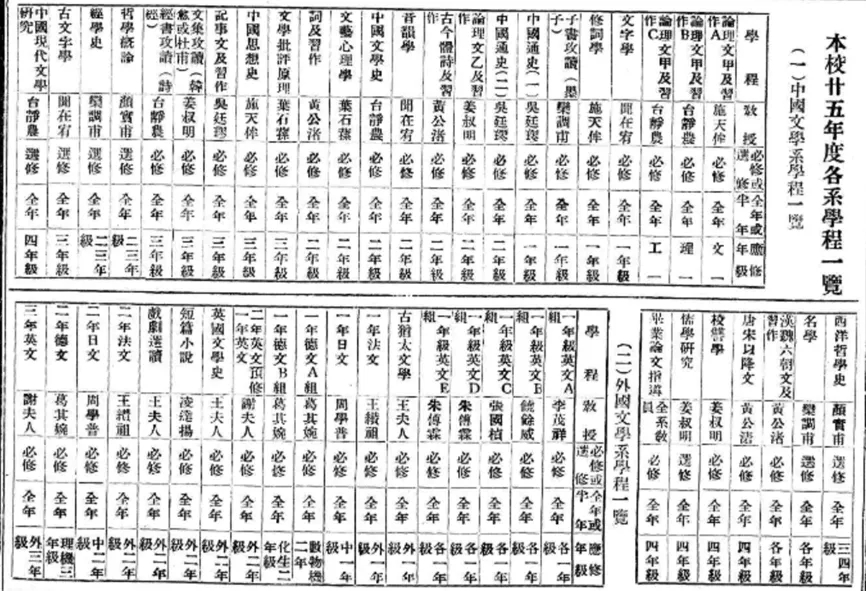 本校廿五年度各系學程一覽
（一）中國文學系學程一覽
學程 教授 必修或選修 全年或半年 應修年級
論理文甲及習作A 施天侔 必修 全年 文一
論理文甲及習作B 台靜農 必修 全年 理一
論理文甲及習作C 台靜農 必修 全年 工一
文字學 聞在宥 必修 全年 一年級
修詞學 施天侔 必修 全年 一年級
子書攻讀（墨子） 欒調甫 必修 全年 一年級
中國通史（一） 吳廷璆 必修 全年 一年級
中國通史（二） 吳廷璆 必修 全年 二年級
論理文乙及習作 姜叔明 必修 全年 二年級
古今體詩及習作 黃公渚 必修 全年 二年級
音韻學 聞在宥 必修 全年 二年級
中國文學史 台靜農 必修 全年 二年級
文藝心理學 葉石蓀 必修 全年 二年級
詞及習作 黃公渚 必修 全年 二年級
文學批評原理 葉石蓀 必修 全年 三年級
中國思想史 施天侔 必修 全年 三年級
記事文及習作 吳廷璆 必修 全年 三年級
文集攻讀（韓愈或杜甫） 姜叔明 必修 全年 三年級
經書攻讀（詩經） 台靜農 必修 全年 三年級
哲學概論 顏實甫 選修 全年 二三年級
經學史 欒調甫 選修 全年 二三年級
古文字學 聞在宥 選修 全年 三年級
中國現代文學研究 台靜農 選修 全年 四年級
西洋哲學史 顏實甫 選修 全年 三四年級
名學 欒調甫 選修 全年 各年級
漢魏六朝文及習作 黃公渚 必修 全年 各年級
唐宋以降文 黃公渚 必修 全年 四年級
校讐學 姜叔明 必修 全年 四年級
儒學研究 姜叔明 選修 全年 四年級
畢業論文指導 全系教員 必修 全年 四年級
（二）外國文學系學程一覽
學程 教授 必修或選修 全年或半年 應修年級
一年級英文A組 李茂祥 必修 全年 各一年級
一年級英文B組 饒餘威 必修 全年 各一年級
一年級英文C組 張國楨 必修 全年 各一年級
一年級英文D組 朱傅霖 必修 全年 各一年級
一年級英文E組 朱傅霖 必修 全年 各一年級
古猶太文學 王夫人 必修 全年 外一年級
一年法文 王纘祖 必修 全年 外一年級
一年日文 周學普 必修 全年 中一年級
一年德文A組 葛其婉 必修 全年 數物機二年
一年德文B組 葛其婉 必修 全年 化生二年級
二年英文預修一年英文 謝夫人 必修 全年 外二年級
英國文學史 王夫人 必修 全年 外二年級
短篇小說 凌達揚 必修 全年 外二年級
戲劇選讀 王夫人 必修 全年 外二年級
二年法文 王纘祖 必修 全年 外二年級
二年日文 周學普 必修 全年 中二年級
二年德文 葛其婉 必修 全年 理機三年級
三年英文 謝夫人 必修 全年 外三年級